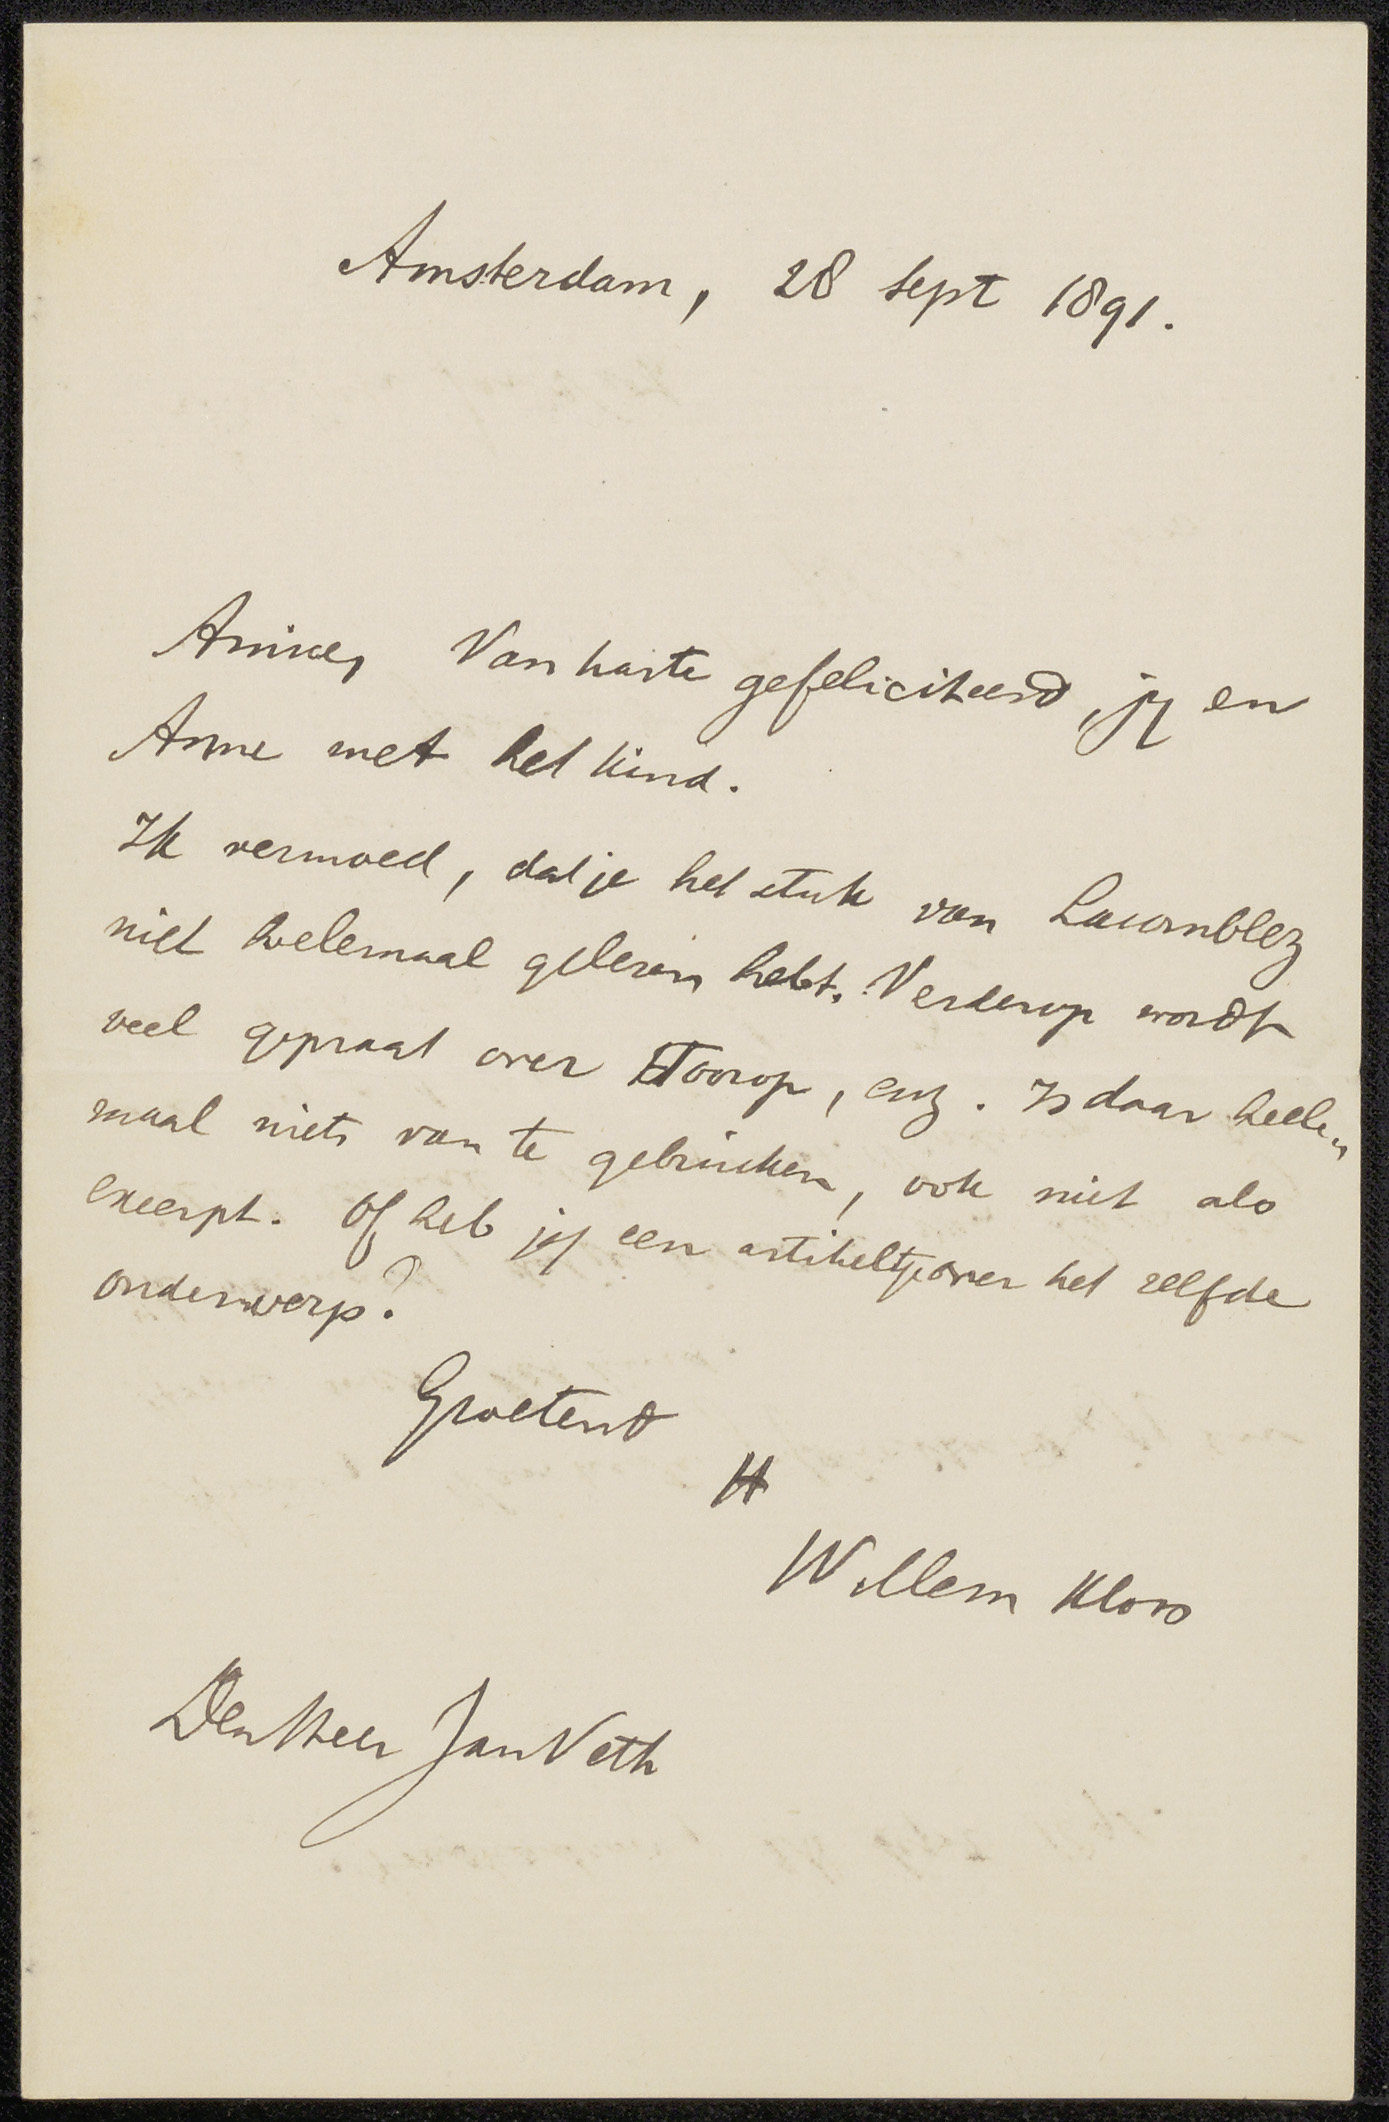 Amsterdam, 28 sept 1891.
Amice, Van harte gefeliciteerd, jij en
Anne met het kind.
Ik vermoed, dat je het stuk van Lacomblez
niet heelemaal gelezen hebt. Verderop wordt
veel gepraat over Toorop, enz. Is daar heele„
maal niets van te gebruiken, ook niet als
exerpt. Of heb jij een artikeltje over het zelfde
onderwerp?
Groetend
H
Willem Kloos
Den Heer Jan Veth